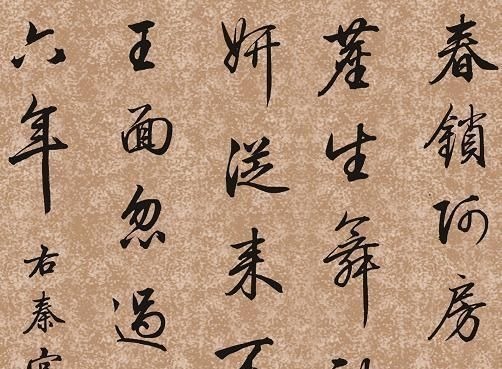 春鎖阿房
塵生舞
妍從來不
王面忽過
六年
右秦宮